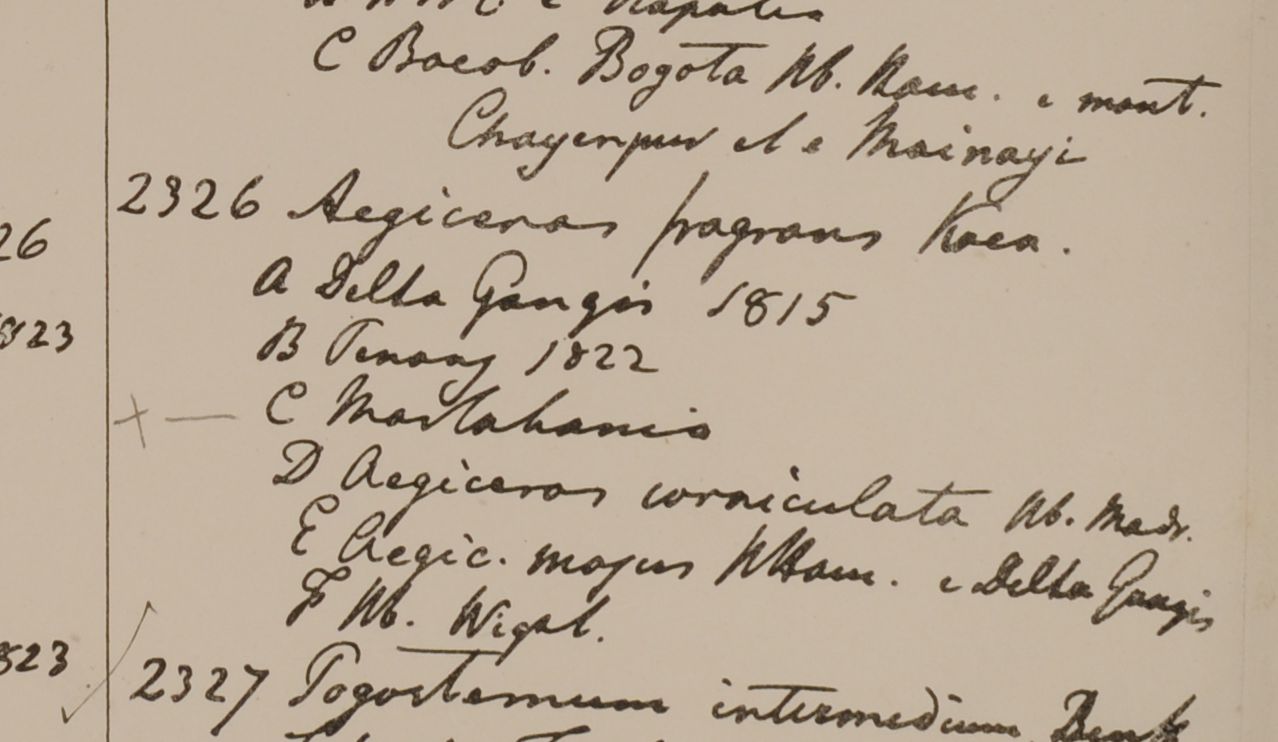 Napalia
C Bacob. Bogota Hb. Ham. e mont.
Chayenpur et e Mainayi
2326 Aegiceras fragrans Koen.
26
A Delta Gangis 1815
B Penang 1822
823
C Martabania
D Aegiceras corniculata Hb. Madr.
E Aegic. majus HHam. e Delta Gangis
F Hb. Wight.
823
2327 Pogostemum intermedium Benth